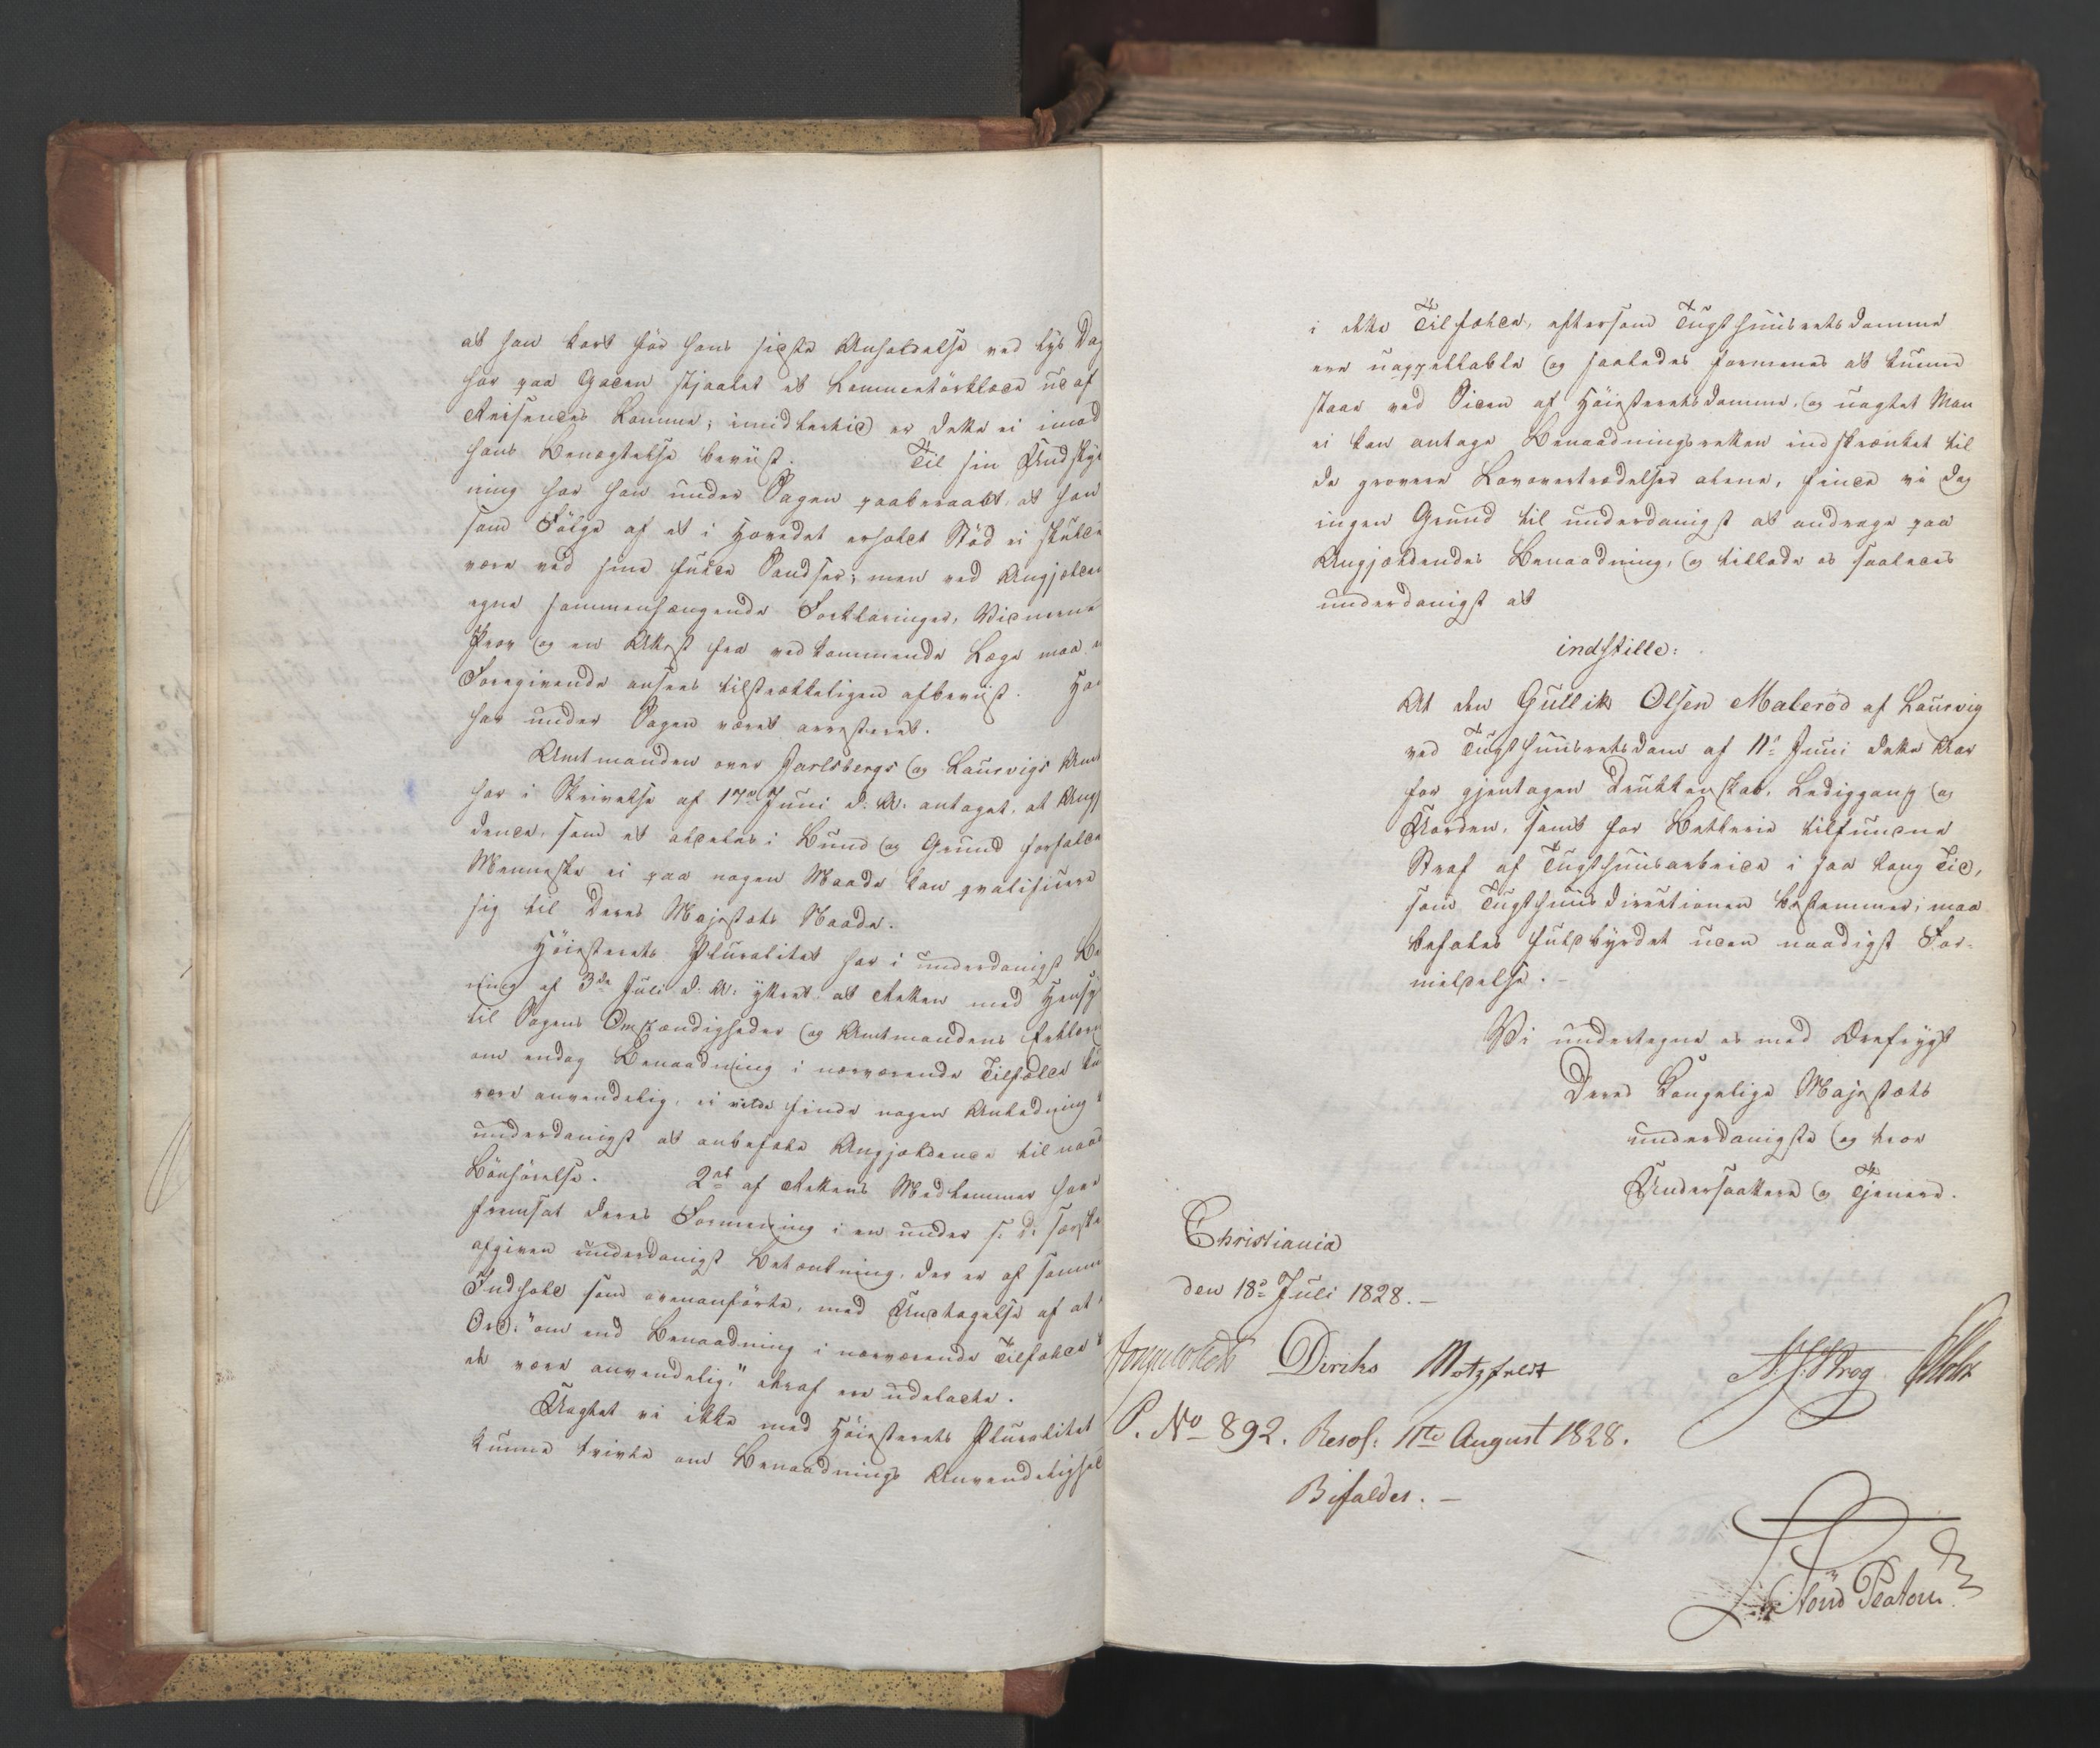 at han kort för hans sidste Anholdelse ved lys Dag
har paa Gaden stjaalet et Lommetörklæde ud af
Reisendes Lomme; imidlertid er dette ei imod
hans Benægtelse beviist. Til sin Undskyld
ning har han under Sagen paaberaabt, at han
som Fölge af et i Hovedet erholdt Stöd ei skulde
være ved sine fulde Sandser; men ved Angjælden
egne sammenhængende Forklaringer, Vidnernes
Prov og en Attest fra vedkommende Læge maa
Foregivende ansees tilstrækkeligen afbeviist. Han
har under Sagen været arresteret.
Amtmanden over Jarlsbergs og Laurvigs Amt
har i Skrivelse af 17de Juni d. A. antaget, at Angj
dende, som et aldeles i Bund og Grund fordærve
Menneske ei paa nogen Maade kan qvalificere
sig til Deres Majestæts Naade.
Höiesterets Pluralitet har i underdanigst Be
ning af 3de Juli d. A. yttret at Retten med Hensyn
til Sagens Omstændigheder og Amtmandens Erklæring
om endog Benaadning i nærværende Tilfælde ku
være anvendelig, ei vilde finde nogen Anledning
underdanigst at anbefale Angjældende til naad
Bönhörelse. 2de af Rettens Medlemmer have
fremsat deres Formening i en under s. D. særskilt
afgiven underdanigst Betænkning, der er af samme
Indhold som ovenanförte, med Undtagelse af at
Ord: "om end Benaadning i nærværende Tilfælde
være anvendelig," deraf ere udeladte.
Uagtet vi ikke med Höiesterets Pluralitet
kunne tvivle om Benaadnings Anvendelighed
i dette Tilfælde, eftersom Tugthuusretsdomme
ere uappellable og saaledes formenes at kunne
staae ved Siden af Höiesteretsdomme, og uagtet Man
ei kan antage Benaadningsretten indskrænket til
de grovere Lovovertrædelser alene, finde vi dog
ingen Grund til underdanigst at andrage paa
Angjældendes Benaadning, og tillade os saaledes
underdanigst at
indstille:
At den Gullik Olsen Maleröd af Laurvig
ved Tugthuusretsdom af 11te Juni dette Aar
for gjentagen Drukkenskab, Lediggang og
Uorden, samt for Betlerie tilfundne
Straf af Tugthuusarbeide i saa lang Tid,
som Tugthuusdirectionen bestemmer, maa
befales fuldbyrdet uden naadigst For-
mildelse. -
Vi undertegne os med Ærefrygt
Deres Kongelige Majestæts
underdanigste og troe
Undersaatter og Tjenere.
Christiania
den 18de Juli 1828. -
Diriks Motzfeldt N. J. Krog Holst
P. No 892. Resol: 11te August 1828.
Bifaldes. -